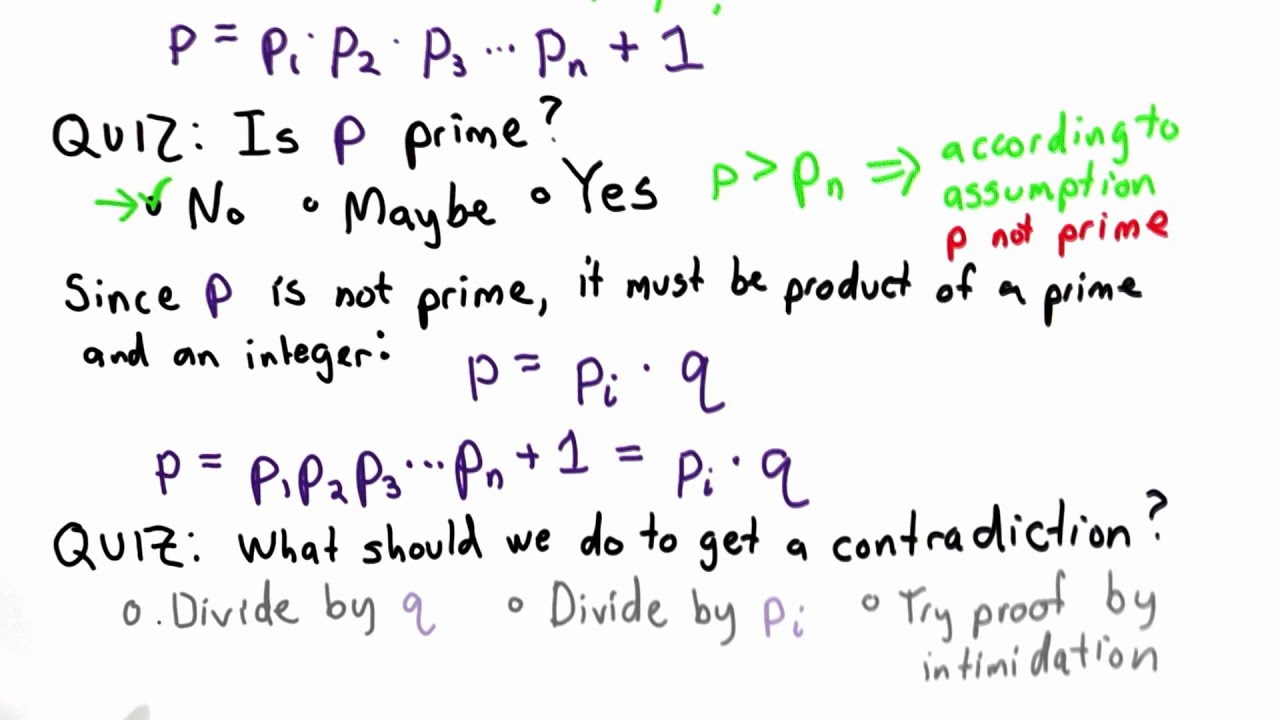 p = p₁ · p₂ · p₃ ··· pₙ + 1
QUIZ: Is p prime?
→ ✓ No ∘ Maybe ∘ Yes
p > pₙ ⇒ according to
assumption
p not prime
Since p is not prime, it must be product of a prime
and an integer:
p = pᵢ · q
p = p₁p₂p₃ ··· pₙ + 1 = pᵢ · q
QUIZ: What should we do to get a contradiction?
∘ . Divide by q ∘ Divide by pᵢ ∘ Try proof by
intimidation